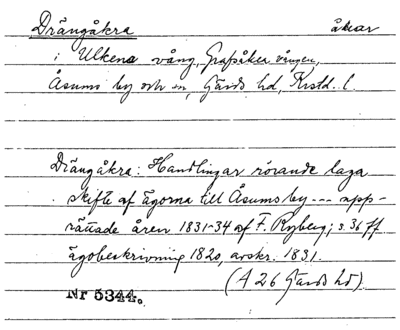 Drängåkra åkrar
i Ulkens vång, Grafsåkersvången,
Åsums by och sn, Gärds hd, Krstd. l.
Drängåkra: Handlingar rörande laga
skifte af ägorna till Åsums by --- upp-
rättade åren 1831-34 af F. Ryberg; s. 36 ff
ägobeskrivning 1820, avskr. 1831.
(A 26 Gärds hd).
Nr 5344.